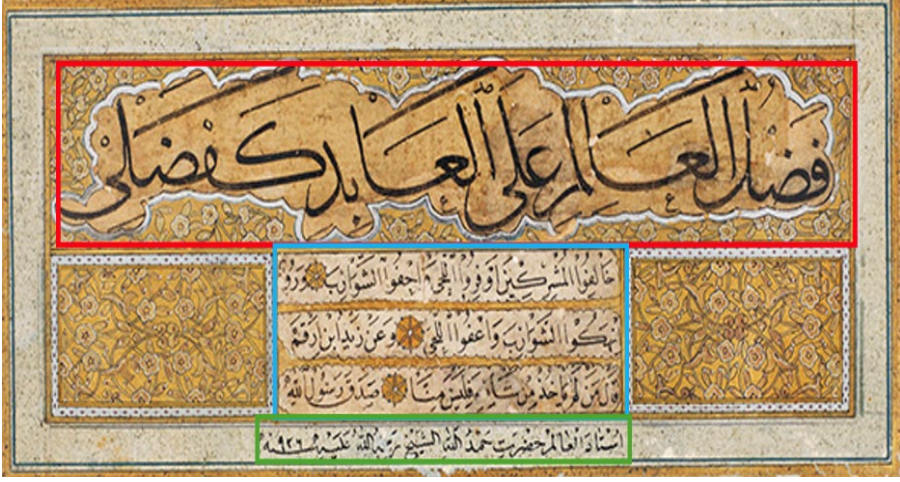 فَضْلُ العَالِمِ عَلَى العَابِدِ كَفَضْلِي
خَالِفُوا المُشْرِكِينَ اَوْفِرُوا اللِّحَى وَاحْفُوا الشَّوَارِبَ وَرَوُا
نْهِكُوا الشَّوَارِبَ وَاعْفُوا اللِّحَى وَعَنْ زَيْدِ ابْنِ اَرْقَمْ
قَالَ مَنْ لَمْ يَأْخُذْ مِنْ شَارِبِهِ فَلَيْسَ مِنَّا صَدَقَ رَسُولُ اللهْ
استاد العالم حضرت حمد الله الشيخ رحمة الله عليه سنه ٩٢٦